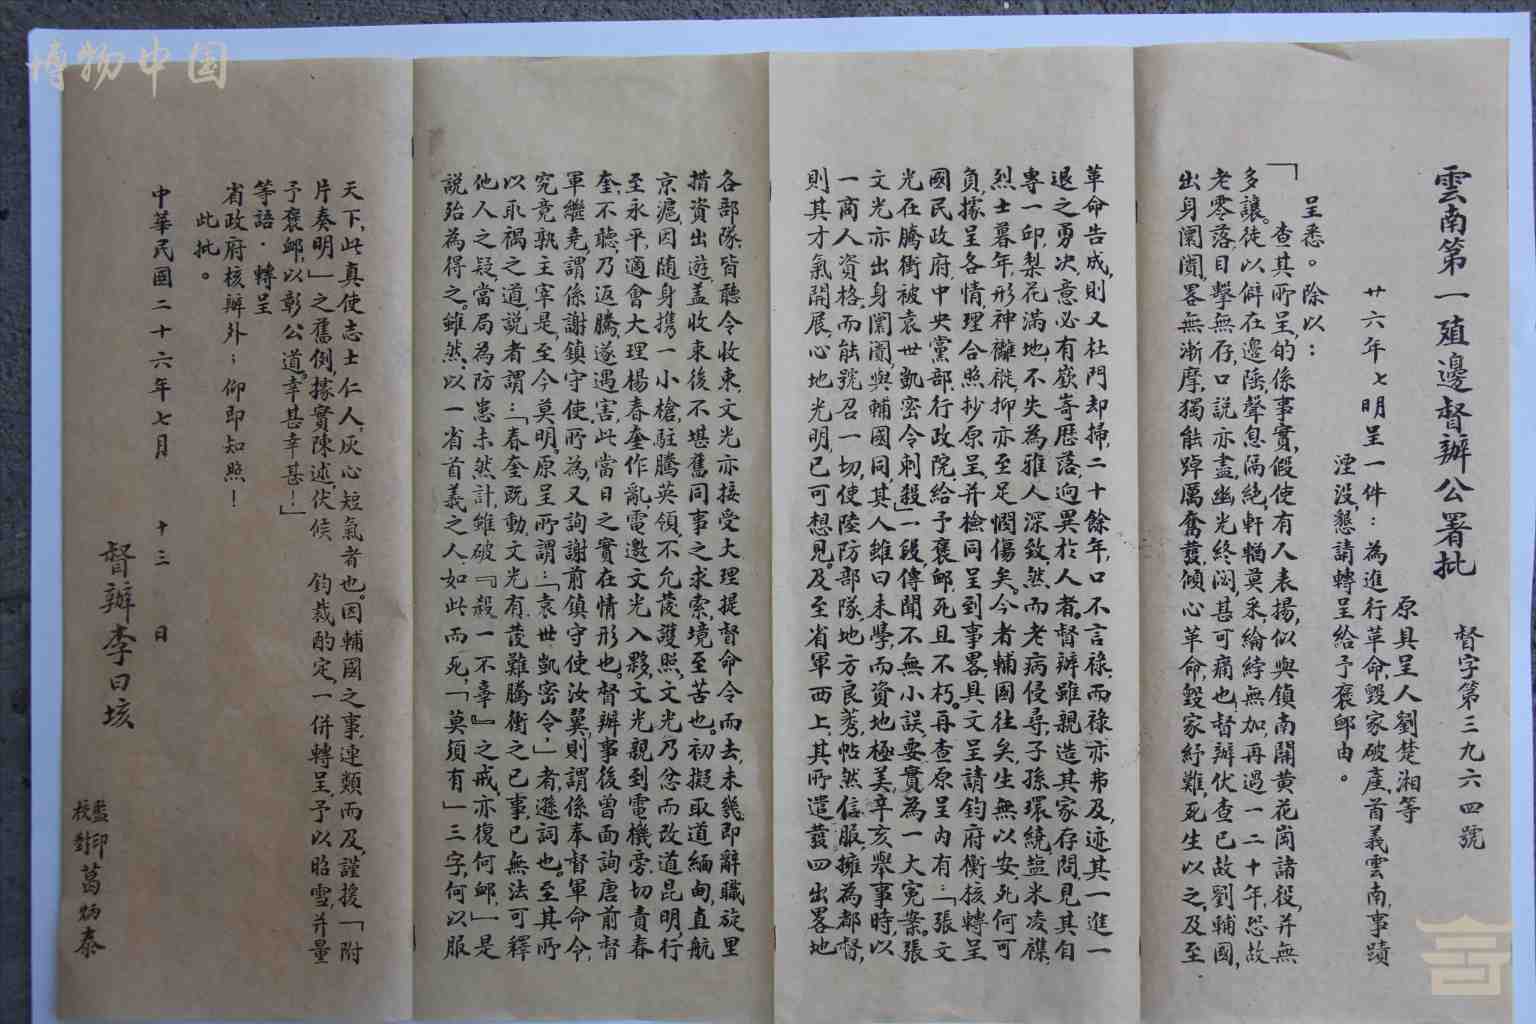 博物中国
雲南第一殖邊督辦公署批
督字第三九六四號
原具呈人劉楚湘等
廿六年七明呈一件：為進行革命，毀家破產，首義雲南，事蹟
湮沒，懇請轉呈給予褒卹由。
呈悉。除以：
「查其所呈，的係事實，假使有人表揚，似與鎮南關黃花崗諸役，并無
多讓。徒以僻在邊陲，聲息隔絕，輶軒莫采，綸綍無加，再過一二十年，恐故
老零落，目擊無存，口說亦盡，幽光終閟，甚可痛也，督辦伏查已故劉輔國，
出身闤闠，畧無漸摩，獨能踔厲奮發，傾心革命，毀家紓難，死生以之，及至
革命告成，則又杜門却掃，二十餘年，口不言祿，而祿亦弗及，迹其一進一
退之勇決，意必有嶔崎歷落，迥異於人者。督辦雖親造其家存問，見其自
專一印，梨花滿地，不失為雅人深致，然而老病侵尋，子孫環繞，盐米凌襍，
烈士暮年，形神離褷，抑亦至足憫傷矣。今者輔國往矣，生無以安，死何可
負，據呈各情，理合照抄原呈，并檢同呈到事畧，具文呈請鈞府衡核轉呈
國民政府，中央黨部，行政院，給予褒卹，死且不朽。再查原呈內有：「張文
光在騰衝被袁世凱密令刺殺」一段，傳聞不無小誤，要實為一大冤案。張
文光亦出身闤闠，與輔國同，其人雖曰未學，而資地極美，辛亥舉事時，以
一商人資格，而能號召一切，使陸防部隊，地方良莠，帖然信服，擁為都督，
則其才氣開展，心地光明，已可想見。及至省軍西上，其所遣發四出畧地
各部隊，皆聽令收束，文光亦接受大理提督命令而去，未幾，即辭職旋里
措資出遊，盖收束後，不堪舊同事之求索，境至苦也。初擬取道緬甸，直航
京滬，因隨身携一小槍，駐騰英領，不允發護照，文光乃忿而改道昆明，行
至永平，適會大理楊春奎作亂，電邀文光入夥，文光親到電機旁，切責春
奎，不聽，乃返騰，遂遇害，此當日之實在情形也。督辦事後曾面詢唐前督
軍繼堯，謂係謝鎮守使所為，又詢謝前鎮守使汝翼，則謂係奉督軍命令，
究竟孰主宰是，至今莫明。原呈所謂：「袁世凱密令，」者，遜詞也。至其所
以取禍之道，說者謂：「春奎既動，文光有發難騰衝之已事，已無法可釋
他人之疑，當局為防患未然計，雖破『殺一不辜』之戒，亦復何卹，」是
說殆為得之。雖然，以一省首義之人，如此而死，「莫須有」三字，何以服
天下，此真使志士仁人，灰心短氣者也。因輔國之事，連類而及，謹援「附
片奏明」之舊例，據實陳述，伏候　鈞裁酌定，一併轉呈，予以昭雪，并量
予褒卹，以彰公道，幸甚幸甚！」
等語．轉呈
省政府核辦外；仰即知照！
此批。
中華民國二十六年七月　十三　日
督辦李曰垓
監印
校對葛炳泰